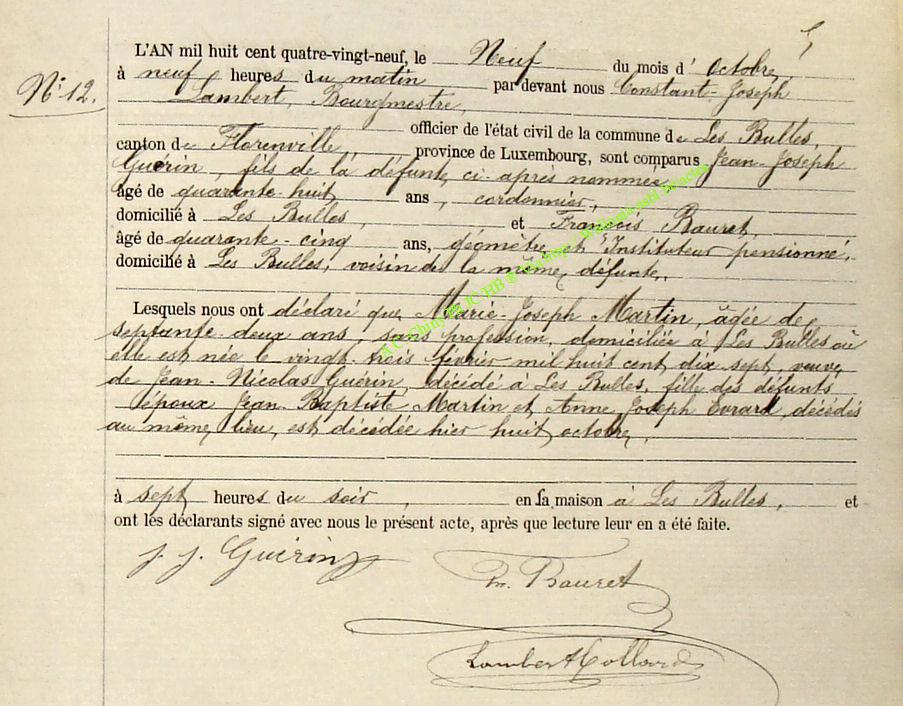 L'AN mil huit cent quatre-vingt-neuf, le Neuf du mois d' Octobre,
N° 12.
à neuf heures du matin par devant nous Constant-Joseph
Lambert, Bourgmestre,
officier de l'état civil de la commune de Les Bulles,
canton de Florenville, province de Luxembourg, sont comparus Jean-Joseph
Guérin, fils de la défunte, ci-après nommée
âgé de quarante-huit ans, cordonnier,
domicilié à Les Bulles, et François Bauret,
âgé de quarante-cinq ans, géomètre et Instituteur pensionné,
domicilié à Les Bulles, voisin de la même défunte,
Lesquels nous ont déclaré que Marie-Joseph Martin, âgée de
septante-deux ans, sans profession, domiciliée à Les Bulles où
elle est née le vingt-trois février mil huit cent dix sept, veuve
de Jean-Nicolas Guérin, décédé à Les Bulles, fille des défunts
époux Jean-Baptiste Martin et Anne Joseph Evrard, décédés
au même lieu, est décédée hier huit octobre,
à sept heures du soir, en sa maison à Les Bulles, et
ont les déclarants signé avec nous le présent acte, après que lecture leur en a été faite.
J. J. Guérin
Bauret
Lambert Collard